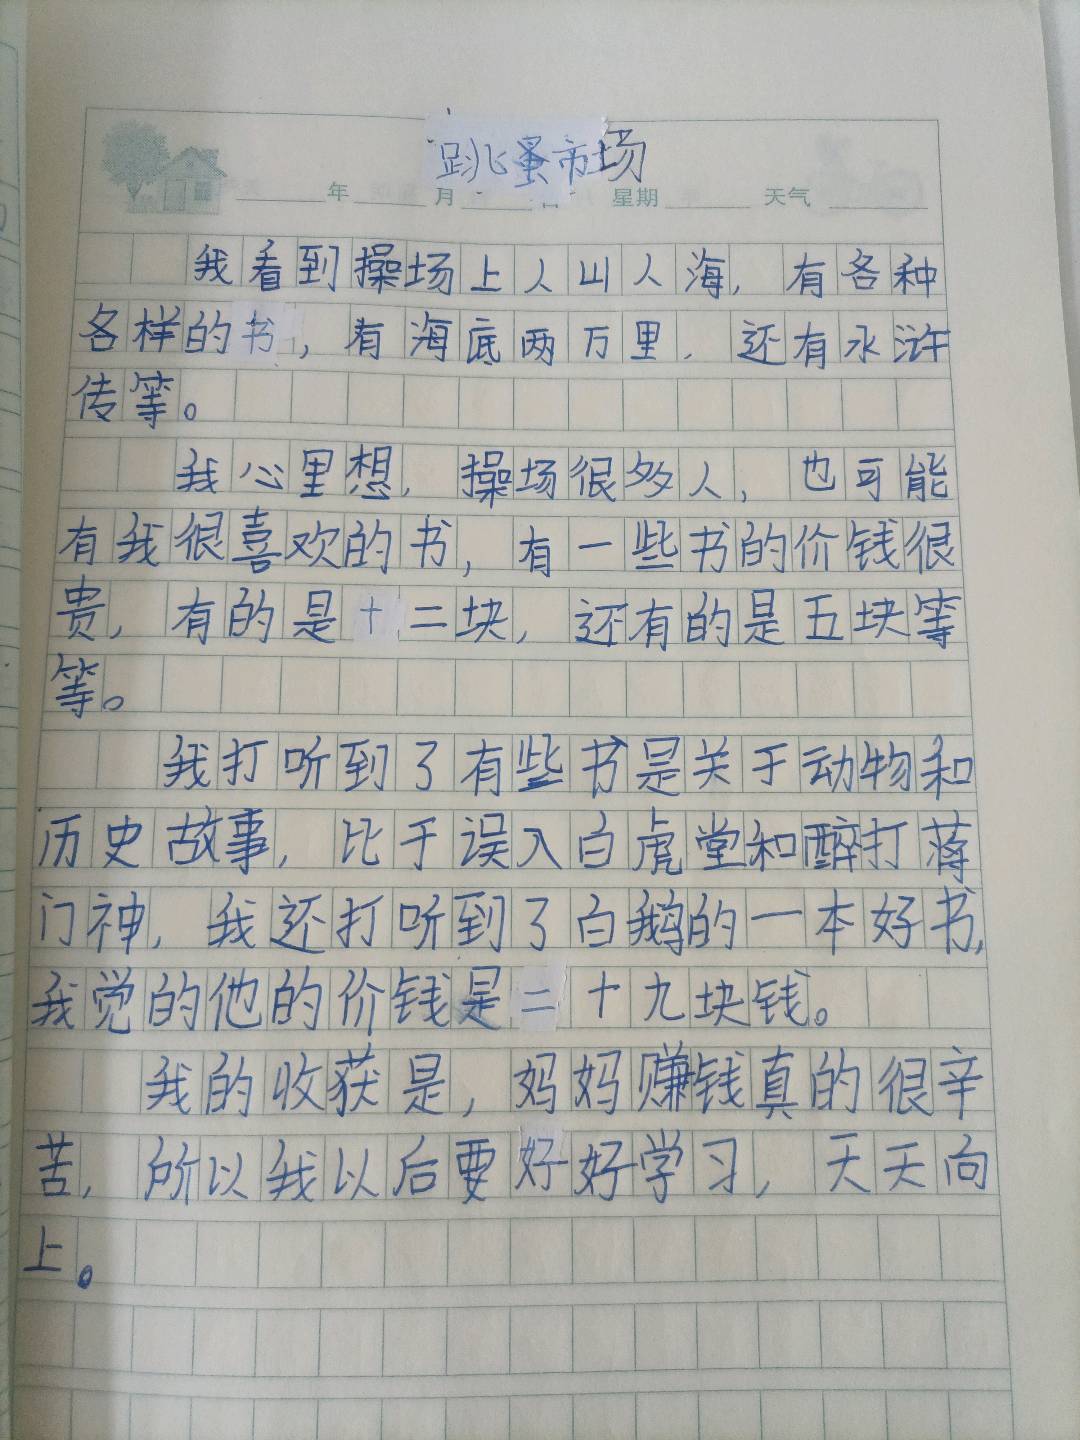 跳蚤市场
年 月 日 星期 天气
我看到操场上人山人海，有各种
各样的书，有海底两万里，还有水浒
传等。
我心里想，操场很多人，也可能
有我很喜欢的书，有一些书的价钱很
贵，有的是十二块，还有的是五块等
等。
我打听到了有些书是关于动物和
历史故事，比于误入白虎堂和醉打蒋
门神，我还打听到了白鹅的一本好书，
我觉的他的价钱是二十九块钱。
我的收获是，妈妈赚钱真的很辛
苦，所以我以后要好好学习，天天向
上。